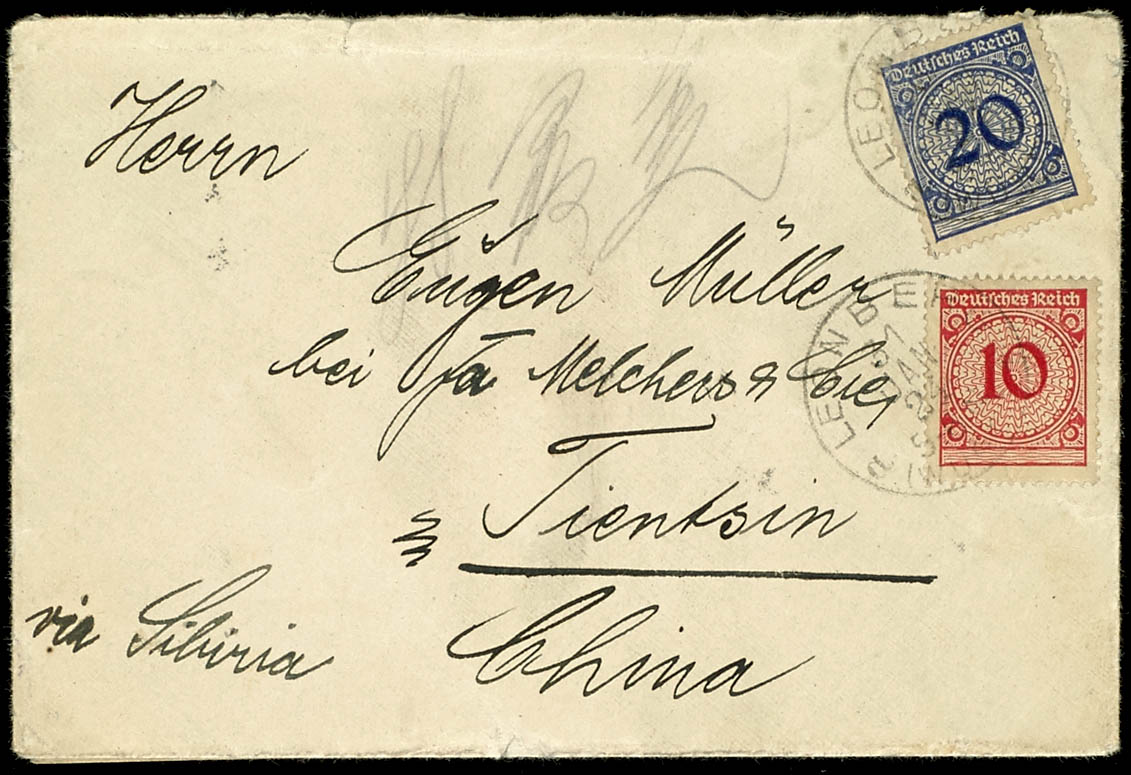 Herrn
Eugen Müller
bei Fa Melchers & Cie,
Tientsin
China
via Sibiria
Deutsches Reich
20
Deutsches Reich
10
LEONBER
JAN